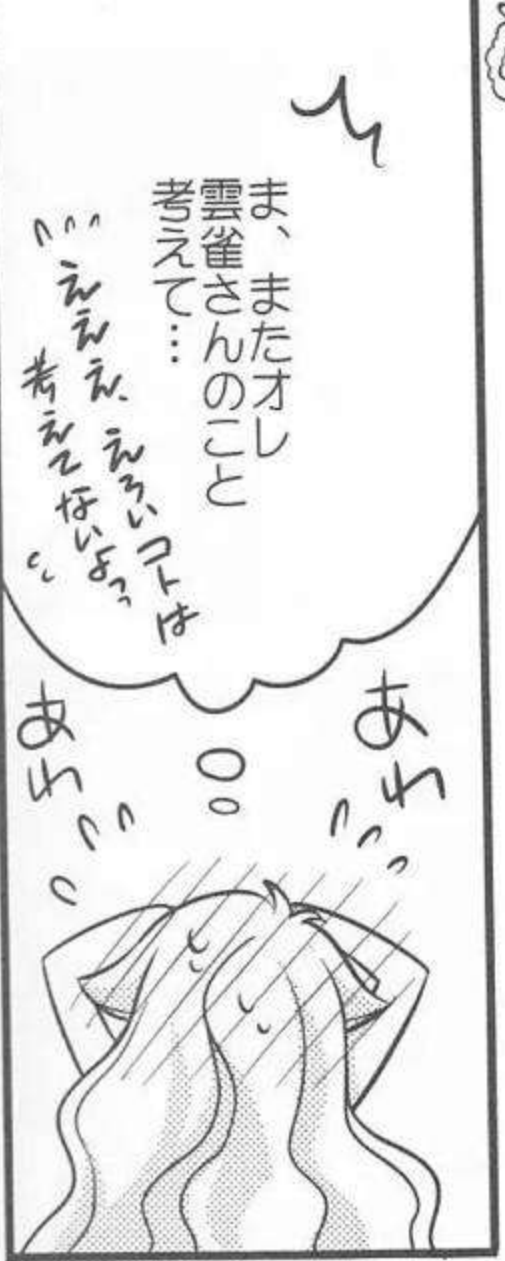 ま、またオレ
雲雀さんのこと
考えて…
ええ え、えろいコトは
考えてないよっっ
あわ
あわ